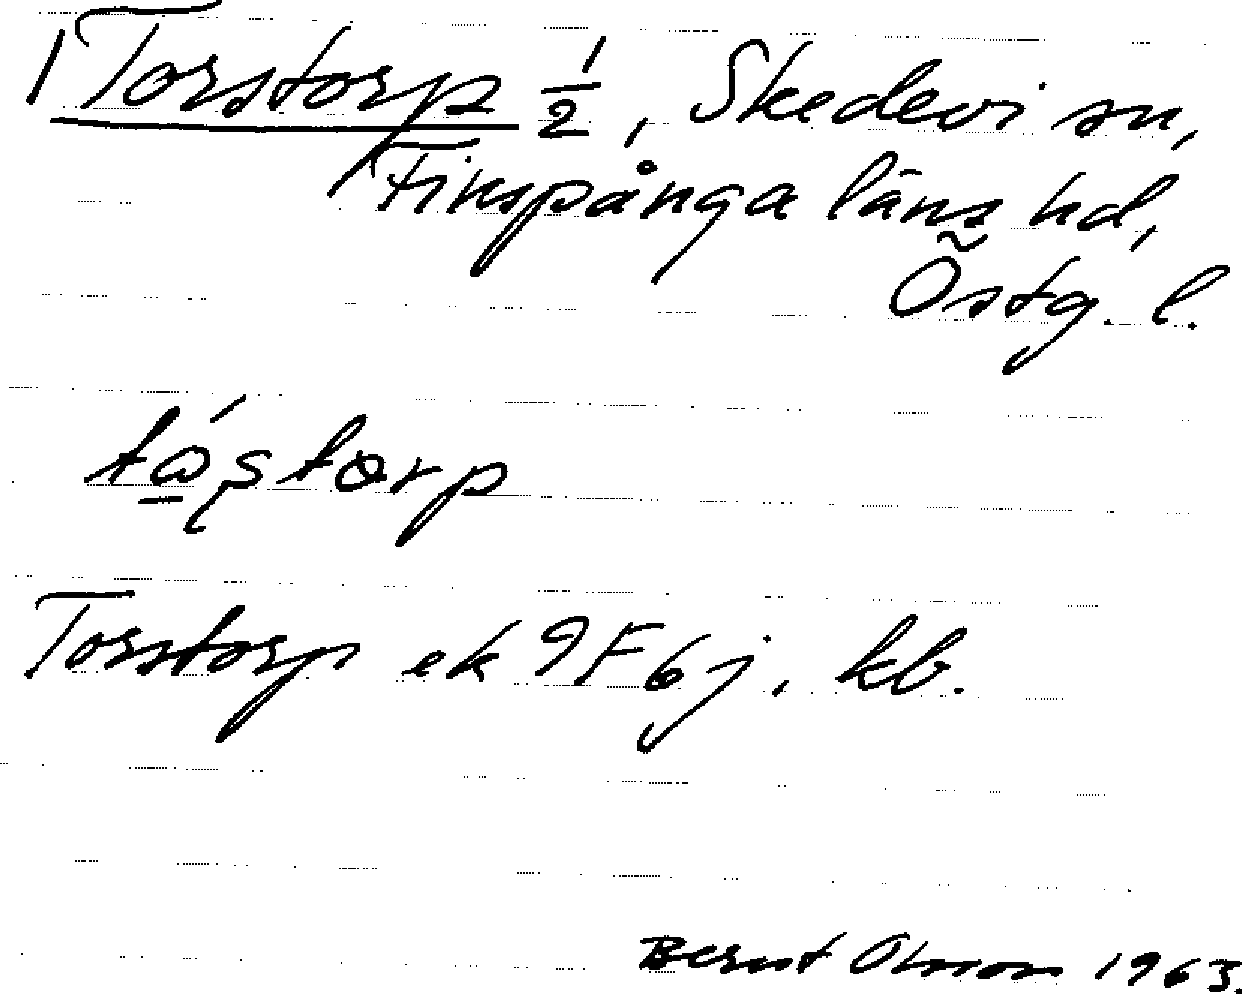 1 Torstorp 1/2, Skedevi sn,
Finspånga läns hd,
Östg. l.
Torstorp ek 9F6j, kb.
Bernt Olsson 1963.